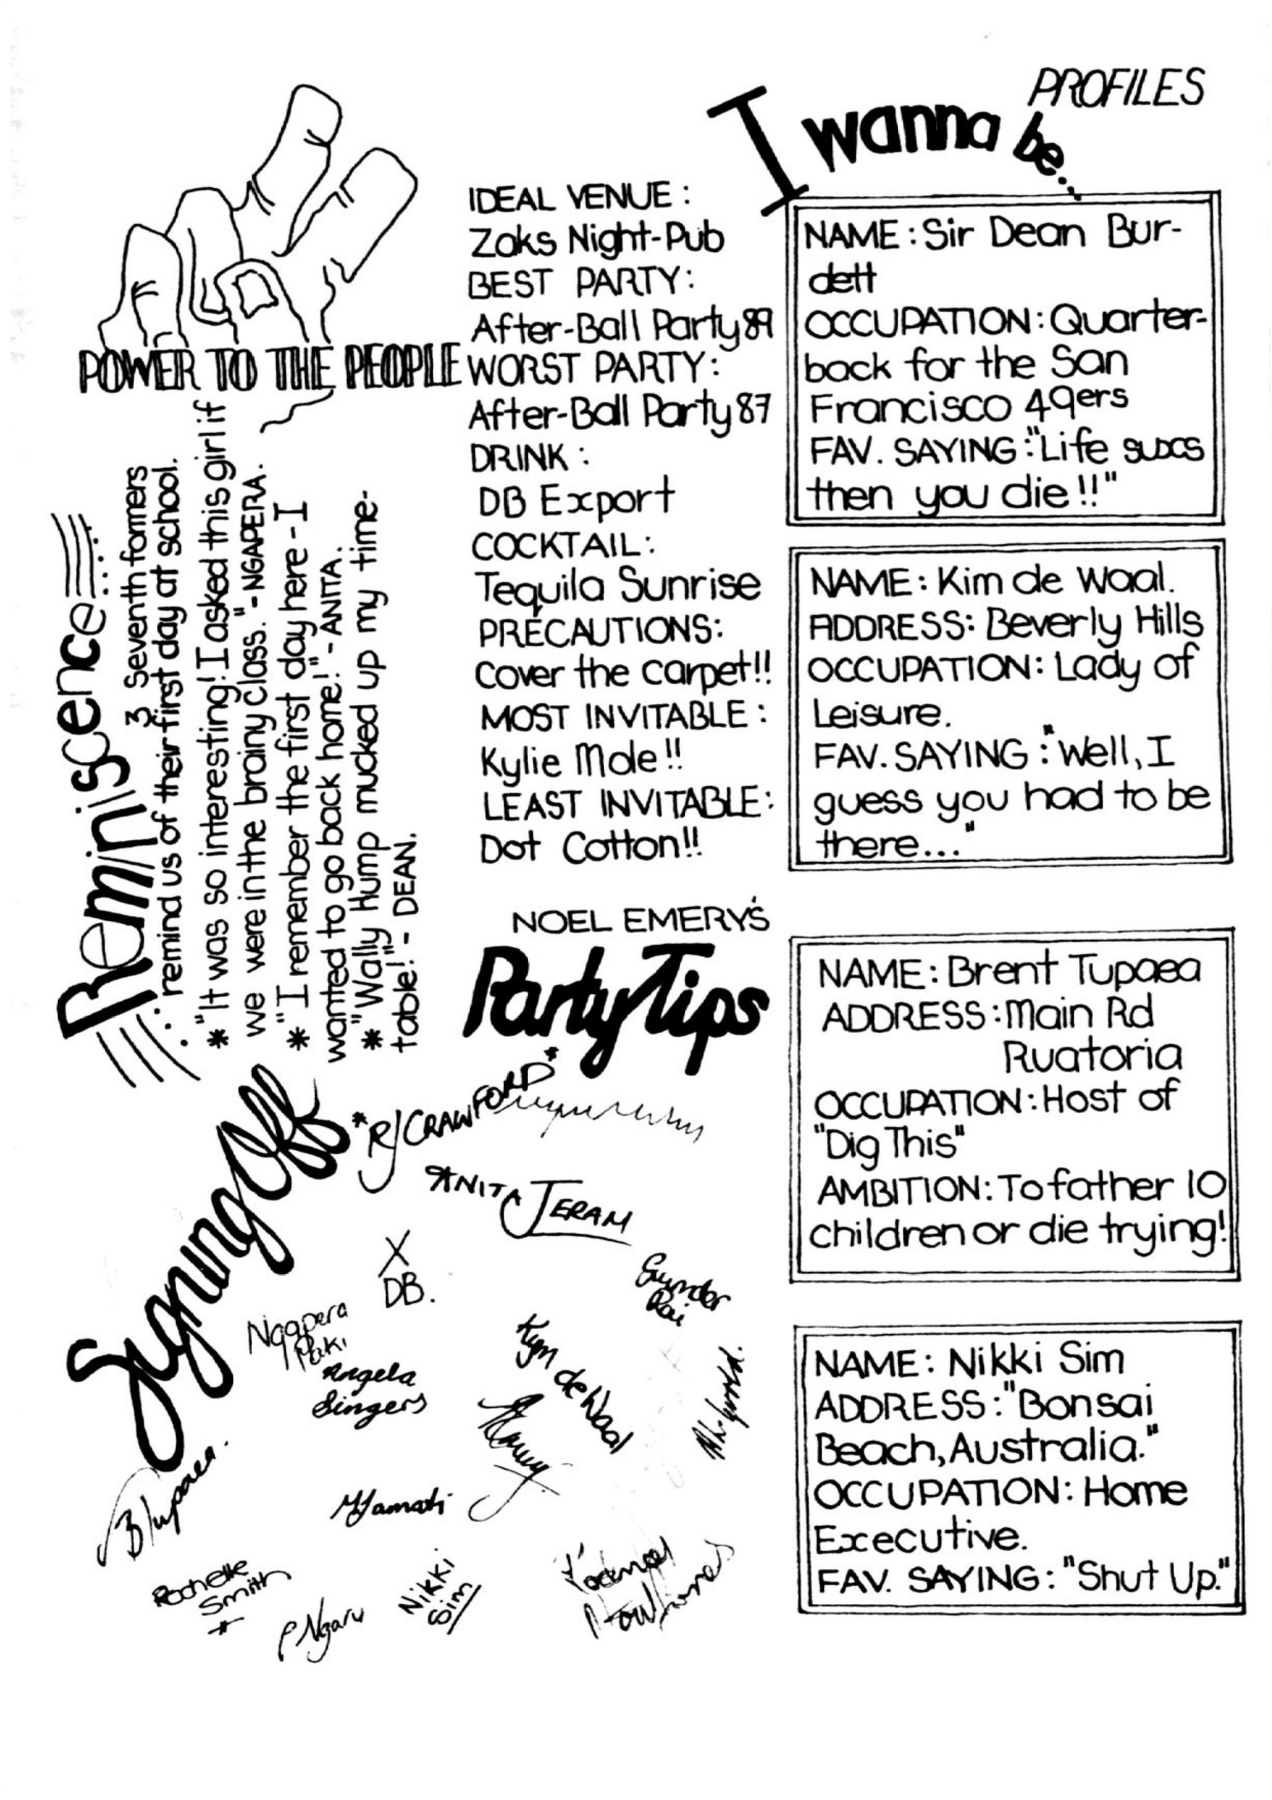 PROFILES
I wanna be...
POWER TO THE PEOPLE
Reminiscence....
3 seventh formers
...remind us of their first day at school.
* "It was so interesting! I asked this girl if
we were in the brainy class." - NGAPERA.
* "I remember the first day here - I
wanted to go back home!" - ANITA.
* "Wally Hump mucked up my time-
table!" - DEAN.
IDEAL VENUE :
Zaks Night-Pub
BEST PARTY:
After-Ball Party 89
WORST PARTY:
After-Ball Party 87
DRINK :
DB Export
COCKTAIL:
Tequila Sunrise
PRECAUTIONS:
Cover the carpet!!
MOST INVITABLE :
Kylie Mole!!
LEAST INVITABLE:
Dot Cotton!!
NOEL EMERY'S
Party Tips
NAME : Sir Dean Bur-
dett
OCCUPATION: Quarter-
back for the San
Francisco 49ers
FAV. SAYING: "Life sucs
then you die!!"
NAME: Kim de Waal.
ADDRESS: Beverly Hills
OCCUPATION: Lady of
Leisure.
FAV. SAYING: "Well, I
guess you had to be
there..."
NAME: Brent Tupaea
ADDRESS: Main Rd
Ruatoria
OCCUPATION: Host of
"Dig This"
AMBITION: To father 10
children or die trying!
NAME: Nikki Sim
ADDRESS: "Bonsai
Beach, Australia."
OCCUPATION: Home
Executive.
FAV. SAYING: "Shut Up."
Signing Off
*RJ CRAWFORD*
ANITA JERAM
X
DB.
Ngapera
Paki
Angela
Singers
Kym de Waal
B Tupaea.
Rochelle
Smith
*
P Ngaru
Nikki
Sim